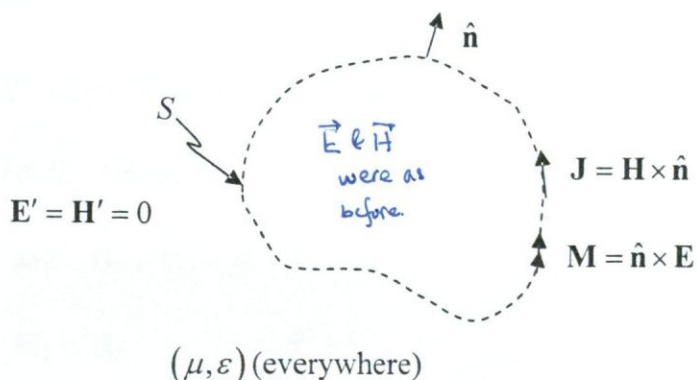 n̂
S
E⃗ & H⃗
were as
before.
J = H × n̂
E′ = H′ = 0
M = n̂ × E
(μ, ε) (everywhere)